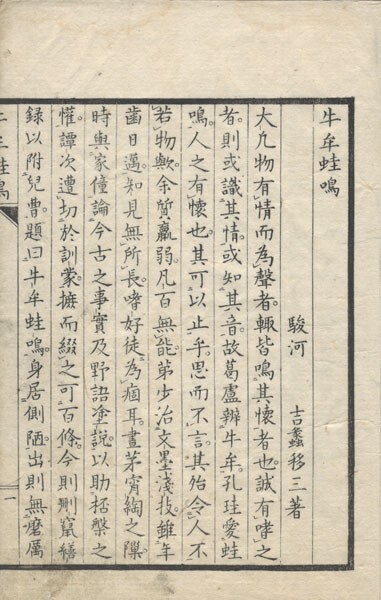 牛牟蛙鳴
駿河 吉蠡移三著
大凡物有情而為聲者輒皆鳴其懷者也誠有哮之
者則或識其情或知其音故葛盧辨牛牟孔珪愛蛙
鳴人之有懷也其可以止乎思而不言其殆令人不
若物歟余質羸弱凡百無能第少治文墨淺技雖年
齒日邁知見無所長嗜好徒為痼耳晝茅宵綯之隙
時與家僮論今古之事實及野語塗説以助栝槃之
懽譚次遭切於訓蒙摭而綴之可百條今則刪竄繕
録以附兒曹題曰牛牟蛙鳴身居側陋出則無磨厲
牛牟蛙鳴
一